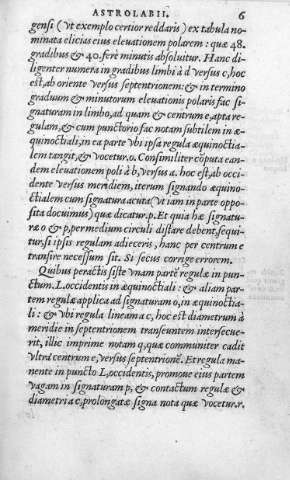 ASTROLABII. 6
gensi (vt exemplo certior reddaris) ex tabula no-
minata elicias eius eleuationem polarem: quæ 48.
gradibus & 40. ferè minutis absoluitur. Hanc di-
ligenter numera in gradibus limbi à d versus c, hoc
est, ab oriente versus septentrionem: & in termino
graduum & minutorum eleuationis polaris fac si-
gnaturam in limbo, ad quam & centrum e, apta re-
gulam, & cum punctorio fac notam subtilem in æ-
quinoctiali, in ea parte vbi ipsa regula æquinoctia-
lem tangit, & vocetur .o. Consimiliter cōputa ean-
dem eleuationem poli à b, versus a. hoc est, ab occi-
dente versus meridiem, iterum signando æquino-
ctialem cum signatura acuta (vt iam in parte oppo-
sita docuimus) quæ dicatur .p. Et quia hæ signatu-
ræ o & p, per medium circuli distare debent, sequi-
tur, si ipsis regulam adieceris, hanc per centrum e
transire necessum sit. Si secus corrige errorem.
Quibus peractis siste vnam partē regulæ in pun-
ctum .L. occidentis in æquinoctiali: & aliam par-
tem regulæ applica ad signaturam o, in æquinoctia-
li: & vbi regula lineam a c, hoc est diametrum à
meridie in septentrionem transeuntem intersecue-
rit, illic imprime notam q, quæ communiter cadit
vltra centrum e, versus septentrionē. Et regula ma-
nente in puncto L, occidentis, promoue eius partem
vagam in signaturam p, & contactum regulæ &
diametri a c, prolongatæ signa nota quæ vocetur .r.